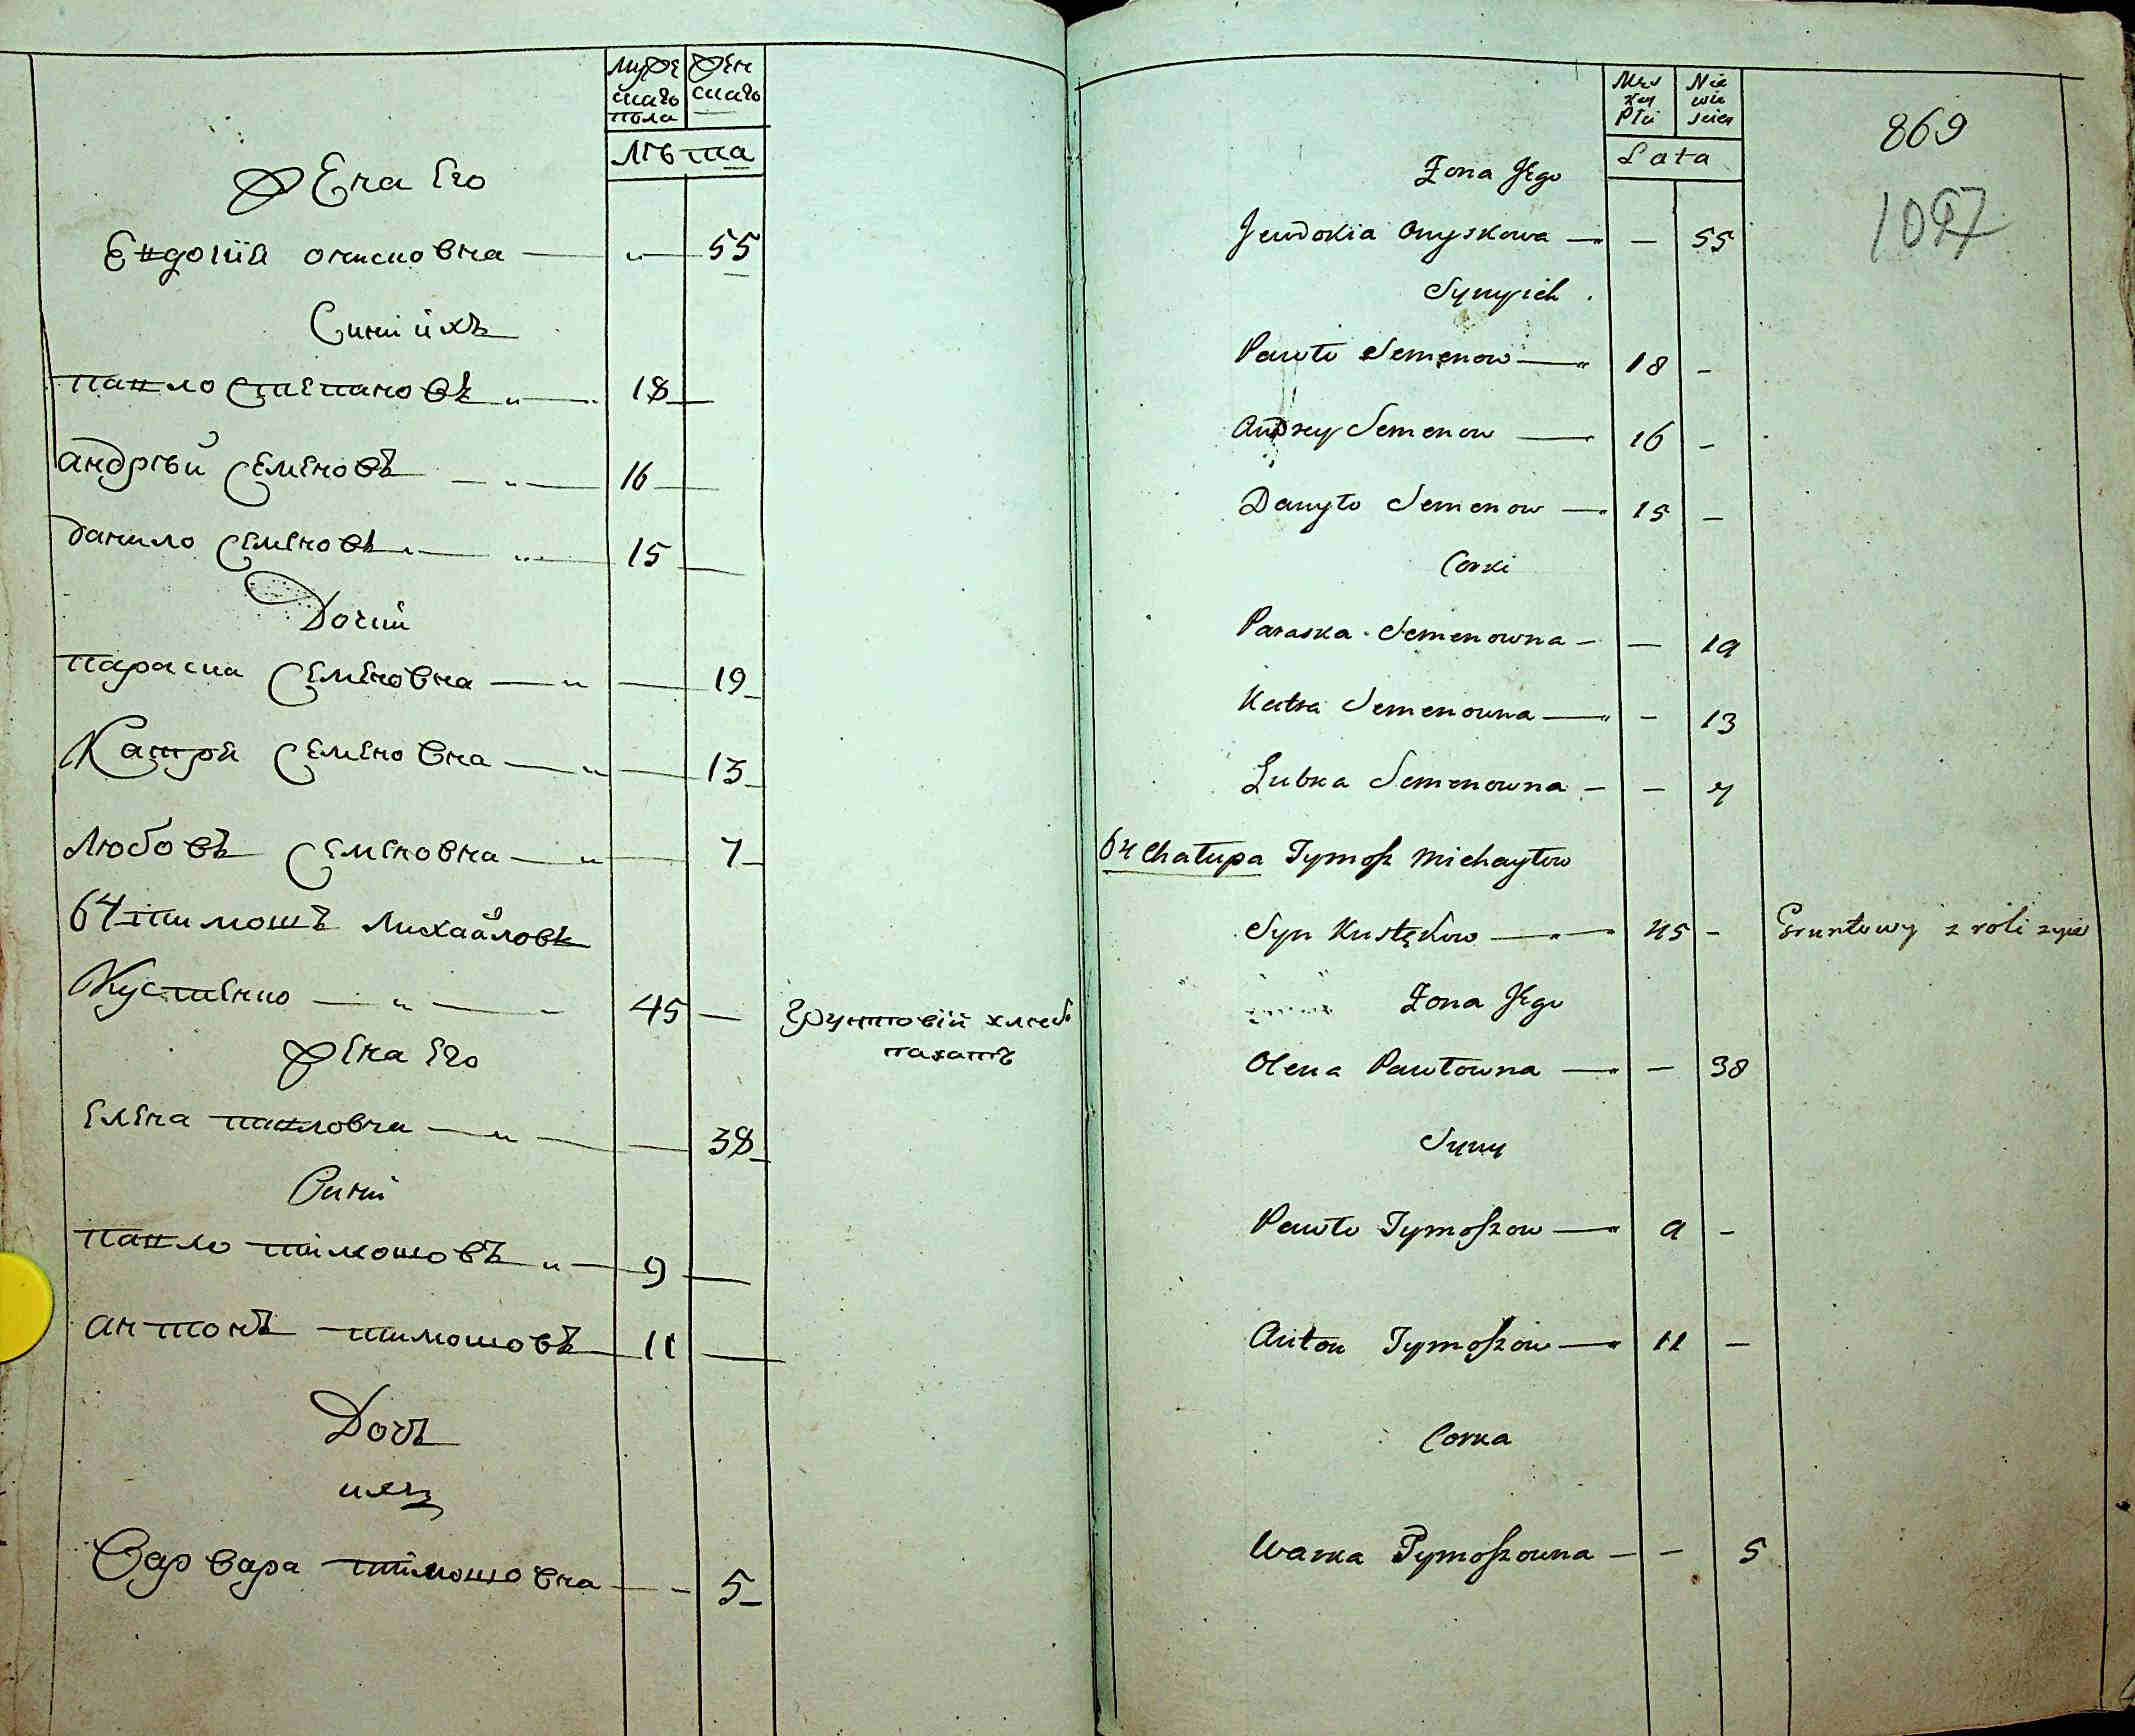 Муже
скаго
пола
Жен
скаго
Лѣта
Жена Его
Евдокія онисковна — „ — 55
Сини ихъ
павло степановъ „ — 18 —
андрѣй Семеновъ — „ — 16 —
данило Семеновъ — „ — 15 —
Дочки
параска Семеновна — „ — 19
Катря Семеновна — „ — 13
Любовъ Семеновна — „ — 7
64 тимошъ Михайловъ
Кустенко — „ — 45 —
грунтовій хлеб
пахатъ
Жена Его
Елена павловна — „ — 38
Сини
павло тимошовъ „ — 9 —
антонъ тимошовъ 11 —
Дочъ
ихъ
Варвара тимошовна — - 5
Męz
key
Płci
Nie
wie
sciey
Lata
869
1097
Zona Jego
Jewdokia Onyskowa — — 55
Synyich
Pawło Semenow — 18 -
Andrey Semenow — 16 -
Danyło Semenow — 15 -
Corki
Paraska Semenowna - — 19
Katra Semenowna — - 13
Lubka Semenowna - - 7
64 Chałupa Tymosz Michayłow
Syn Kustękow — 45 - Gruntowy z roli zyie
Zona Jego
Olena Pawłowna — - 38
Syny
Pawło Tymoszow — 9 -
Anton Tymoszow — 11 -
Corka
Warka Tymoszowna - - 5